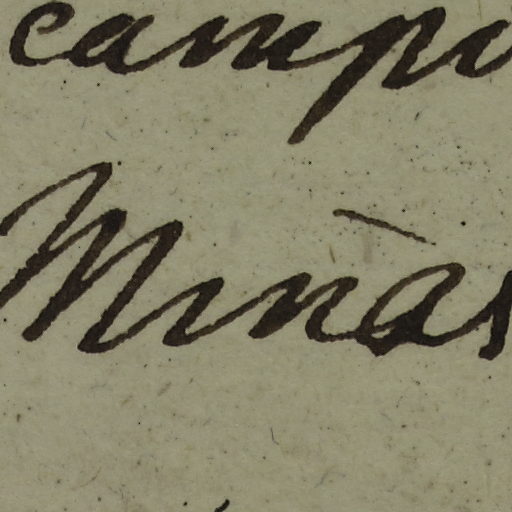 campi
Minas